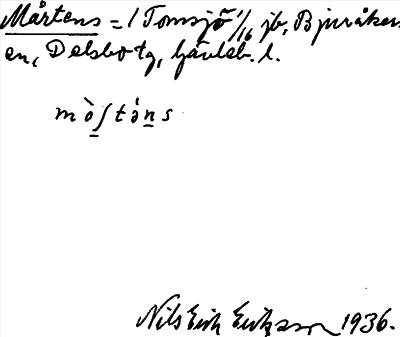 Mårtens = 1 Tomsjö 1/16 jb, Bjuråkers
en, Delsbo tg, Gävleb. l.
mò̠ʃtə́n̠s
Nils Erik Eriksson 1936.